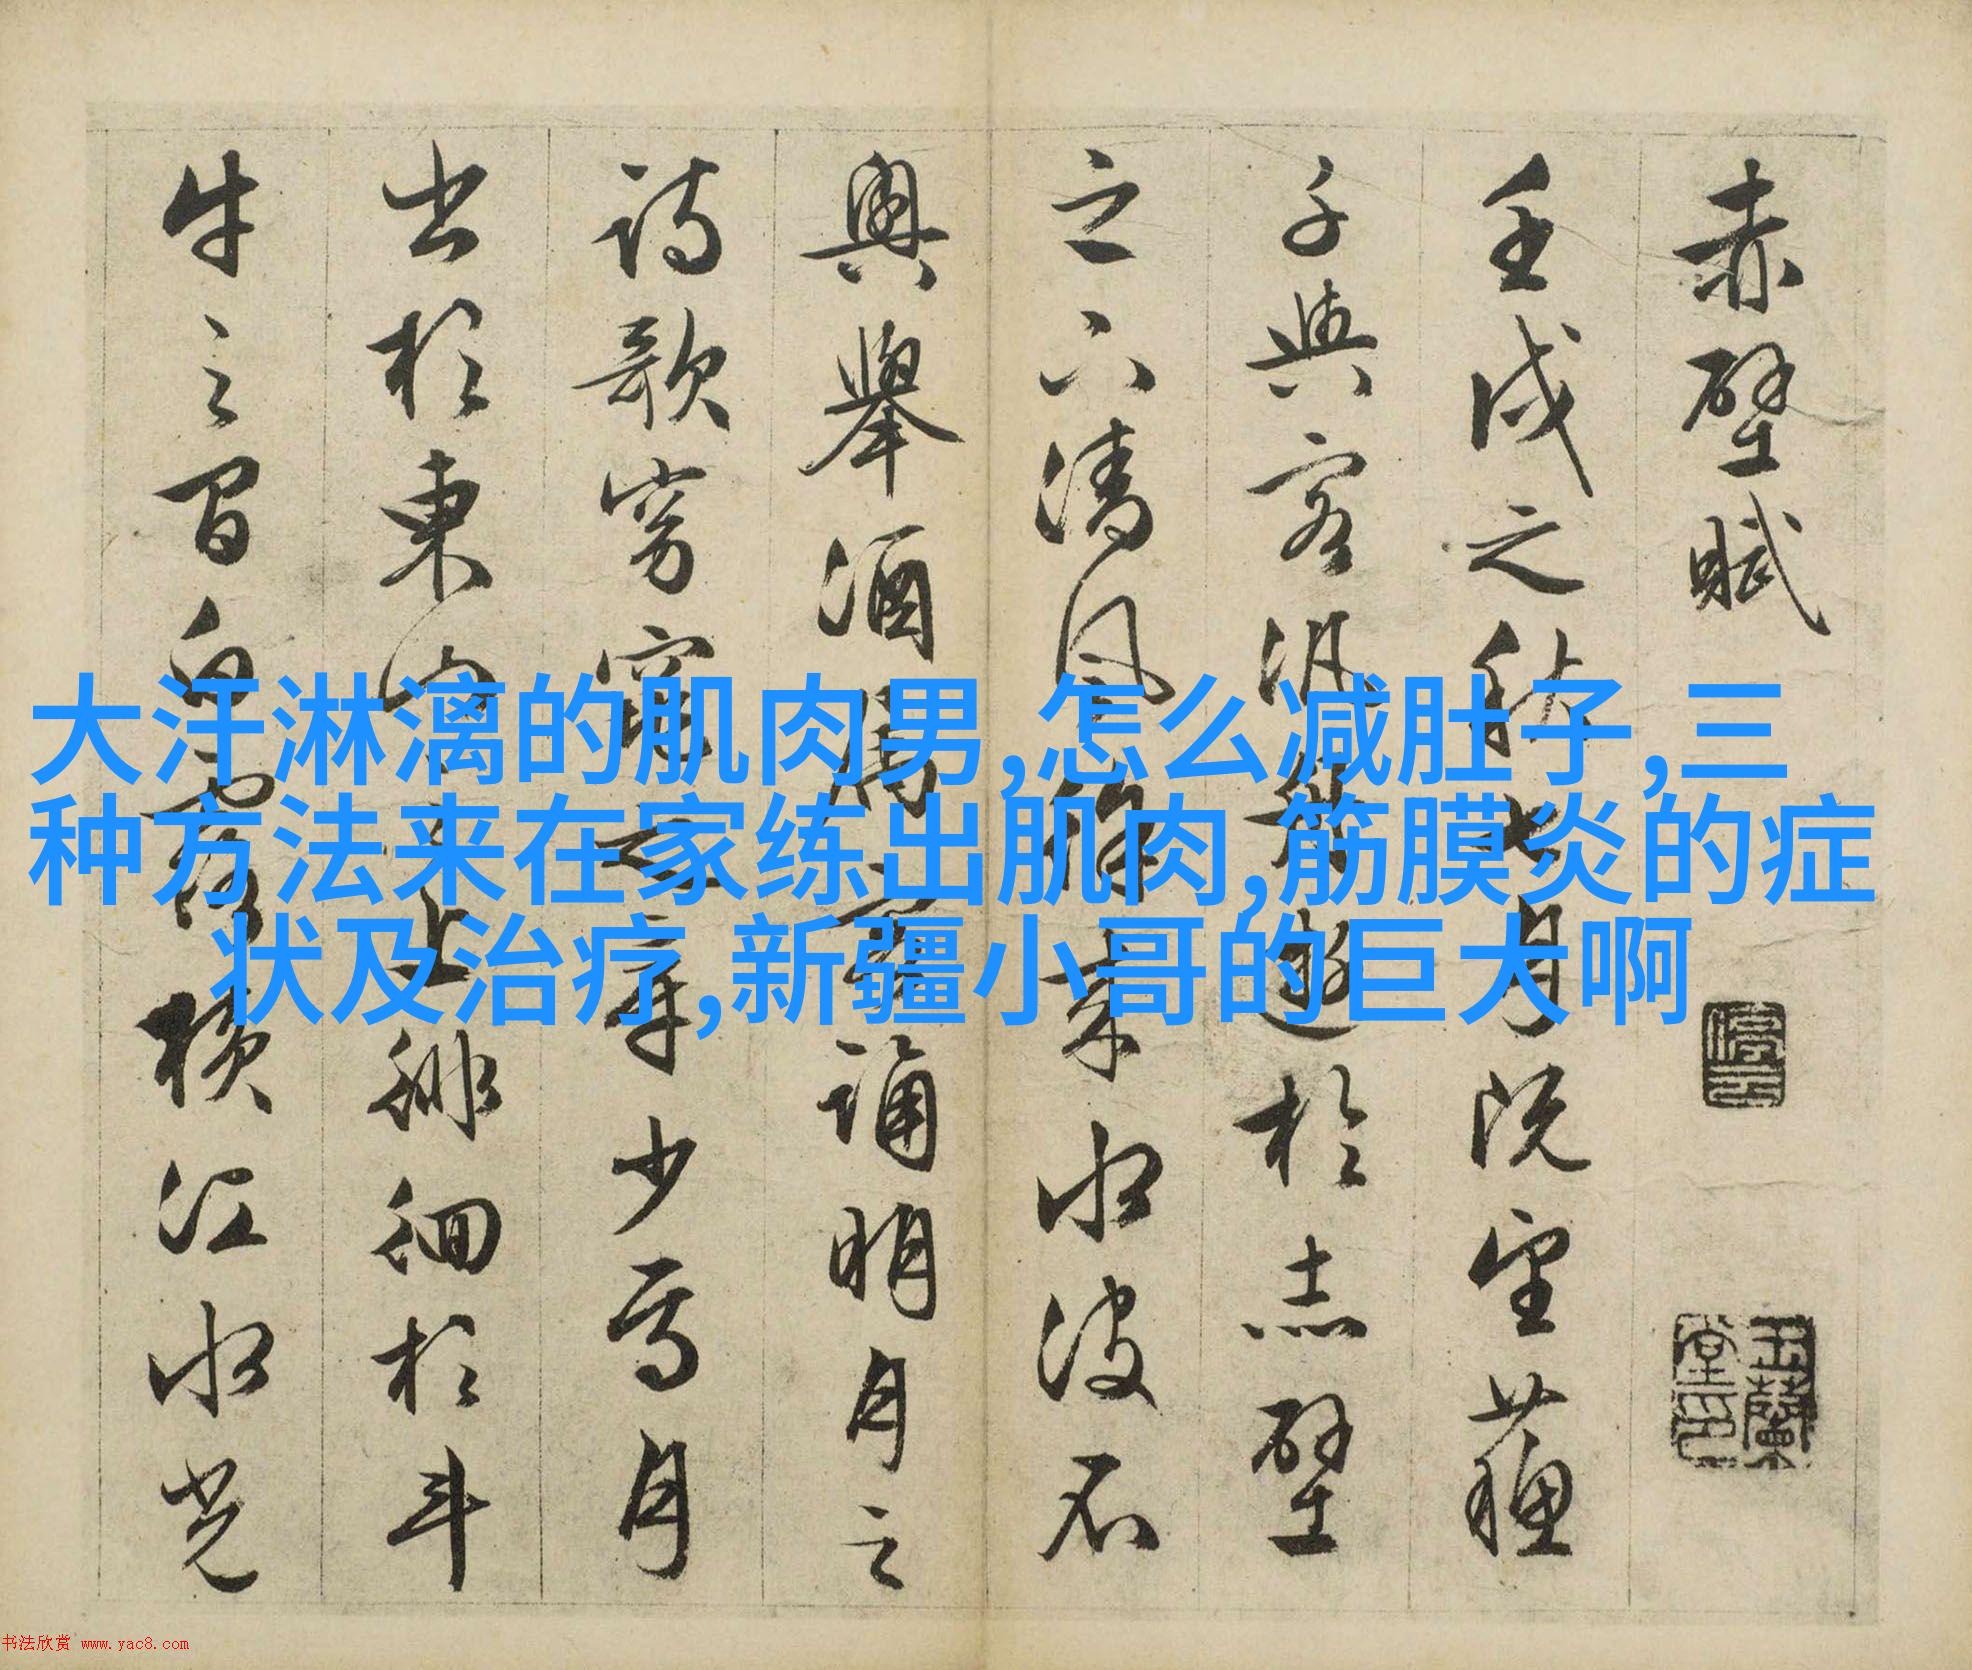 赤壁賦
壬戌之秋七月既望蘇
子與客汎舟遊於赤壁
之下清風徐來水波不
興舉酒屬客誦明月之
詩歌窈窕之章少焉月
出於東山之上徘徊於斗
牛之間白露橫江水光
停云
玉蘭堂印
大汗淋漓的肌肉男,怎么减肚子,三
种方法来在家练出肌肉,筋膜炎的症
状及治疗,新疆小哥的巨大啊
书法欣赏 www.yac8.com